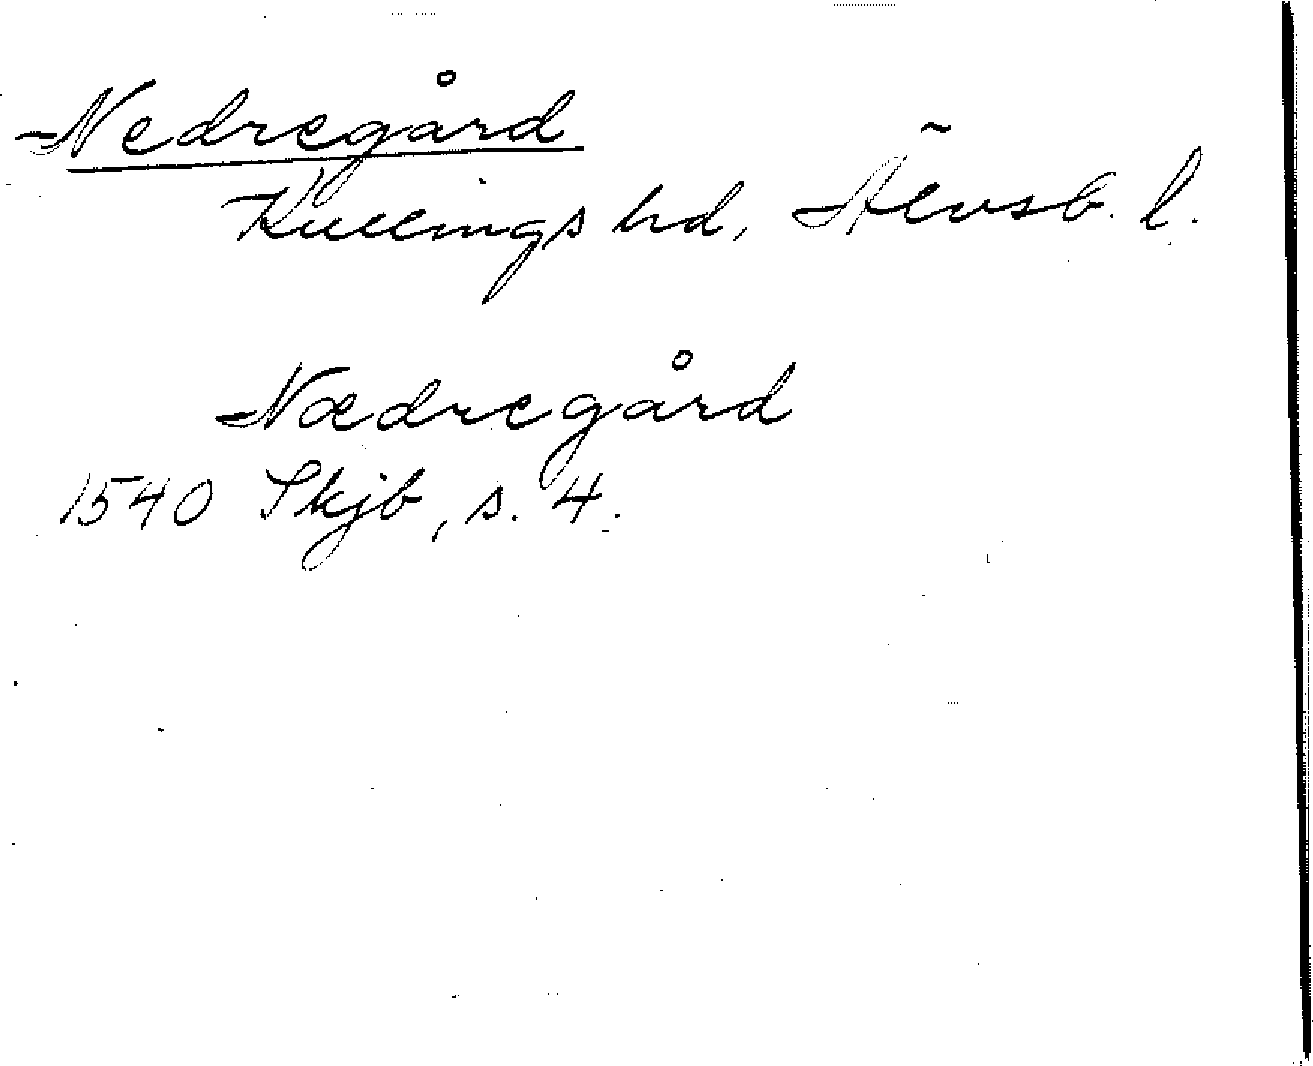 Nedregård
Kullings hd, Älvsb. l.
Nædregård
1540 Skjb, s. 4.